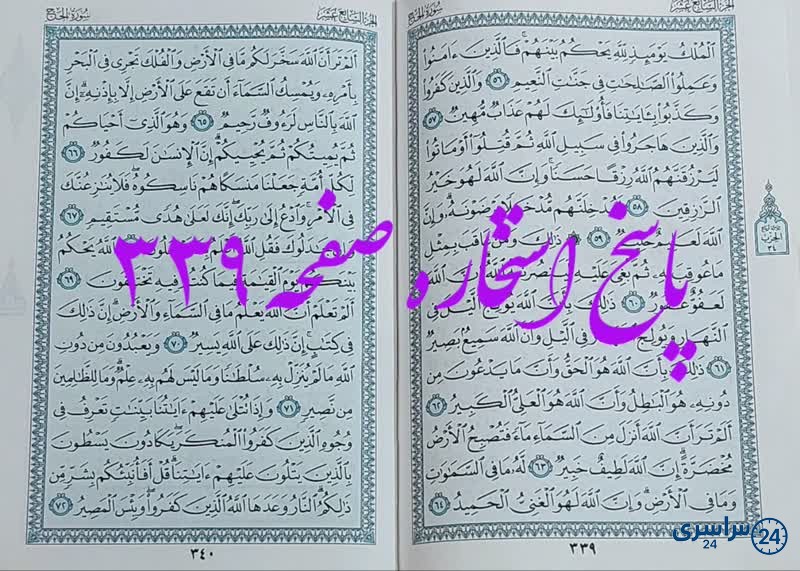 سورة الحج
الجزء السابع عشر
الملك يومئذ لله يحكم بينهم فالذين ءامنوا
وعملوا الصالحات في جنات النعيم ٥٦ والذين كفروا
وكذبوا بـٔاياتنا فأولئك لهم عذاب مهين ٥٧
والذين هاجروا في سبيل الله ثم قتلوا أو ماتوا
ليرزقنهم الله رزقا حسنا وإن الله لهو خير
الرازقين ٥٨ يرضونه وإن
الله لعليم حليم ٥٩ ذلك ومن عاقب بمثل
ما عوقب به ثم بغي عليه الله إن الله
لعفو غفور ٦٠ ذلك بأن الله يولج اليل في
النهار ويولج في اليل وأن الله سميع بصير
٦١ ذلك بأن الله هو الحق وأن ما يدعون من
دونه هو الباطل وأن الله هو العلي الكبير ٦٢
ألم تر أن الله أنزل من السماء ماء فتصبح الأرض
مخضرة إن الله لطيف خبير ٦٣ له ما في السماوات
وما في الأرض وإن الله لهو الغني الحميد ٦٤
٣٣٩
الحزب
٣٤
الجزء السابع عشر
سورة الحج
ألم تر أن الله سخر لكم ما في الأرض والفلك تجري في البحر
بأمره ويمسك السماء أن تقع على الأرض إلا بإذنه إن
الله بالناس لرءوف رحيم ٦٥ وهو الذي أحياكم
ثم يميتكم ثم يحييكم إن الإنسان لكفور ٦٦
لكل أمة جعلنا منسكا هم ناسكوه فلا ينازعنك
في الأمر وادع إلى ربك إنك لعلى هدى مستقيم ٦٧
وإن جادلوك فقل الله الله يحكم
بينكم يوم القيامة فيما كنتم فيه تختلفون ٦٩
ألم تعلم أن الله يعلم ما في السماء والأرض إن ذلك
في كتاب إن ذلك على الله يسير ٧٠ ويعبدون من دون
الله ما لم ينزل به سلطانا وما ليس لهم به علم وما للظالمين
من نصير ٧١ وإذا تتلى عليهم ءاياتنا بينات تعرف في
وجوه الذين كفروا المنكر يكادون يسطون
بالذين يتلون عليهم ءاياتنا قل أفأنبئكم بشر من
ذلكم النار وعدها الله الذين كفروا وبئس المصير ٧٢
٣٤٠
پاسخ استخاره صفحه ۳۳۹
سراسری 24
24